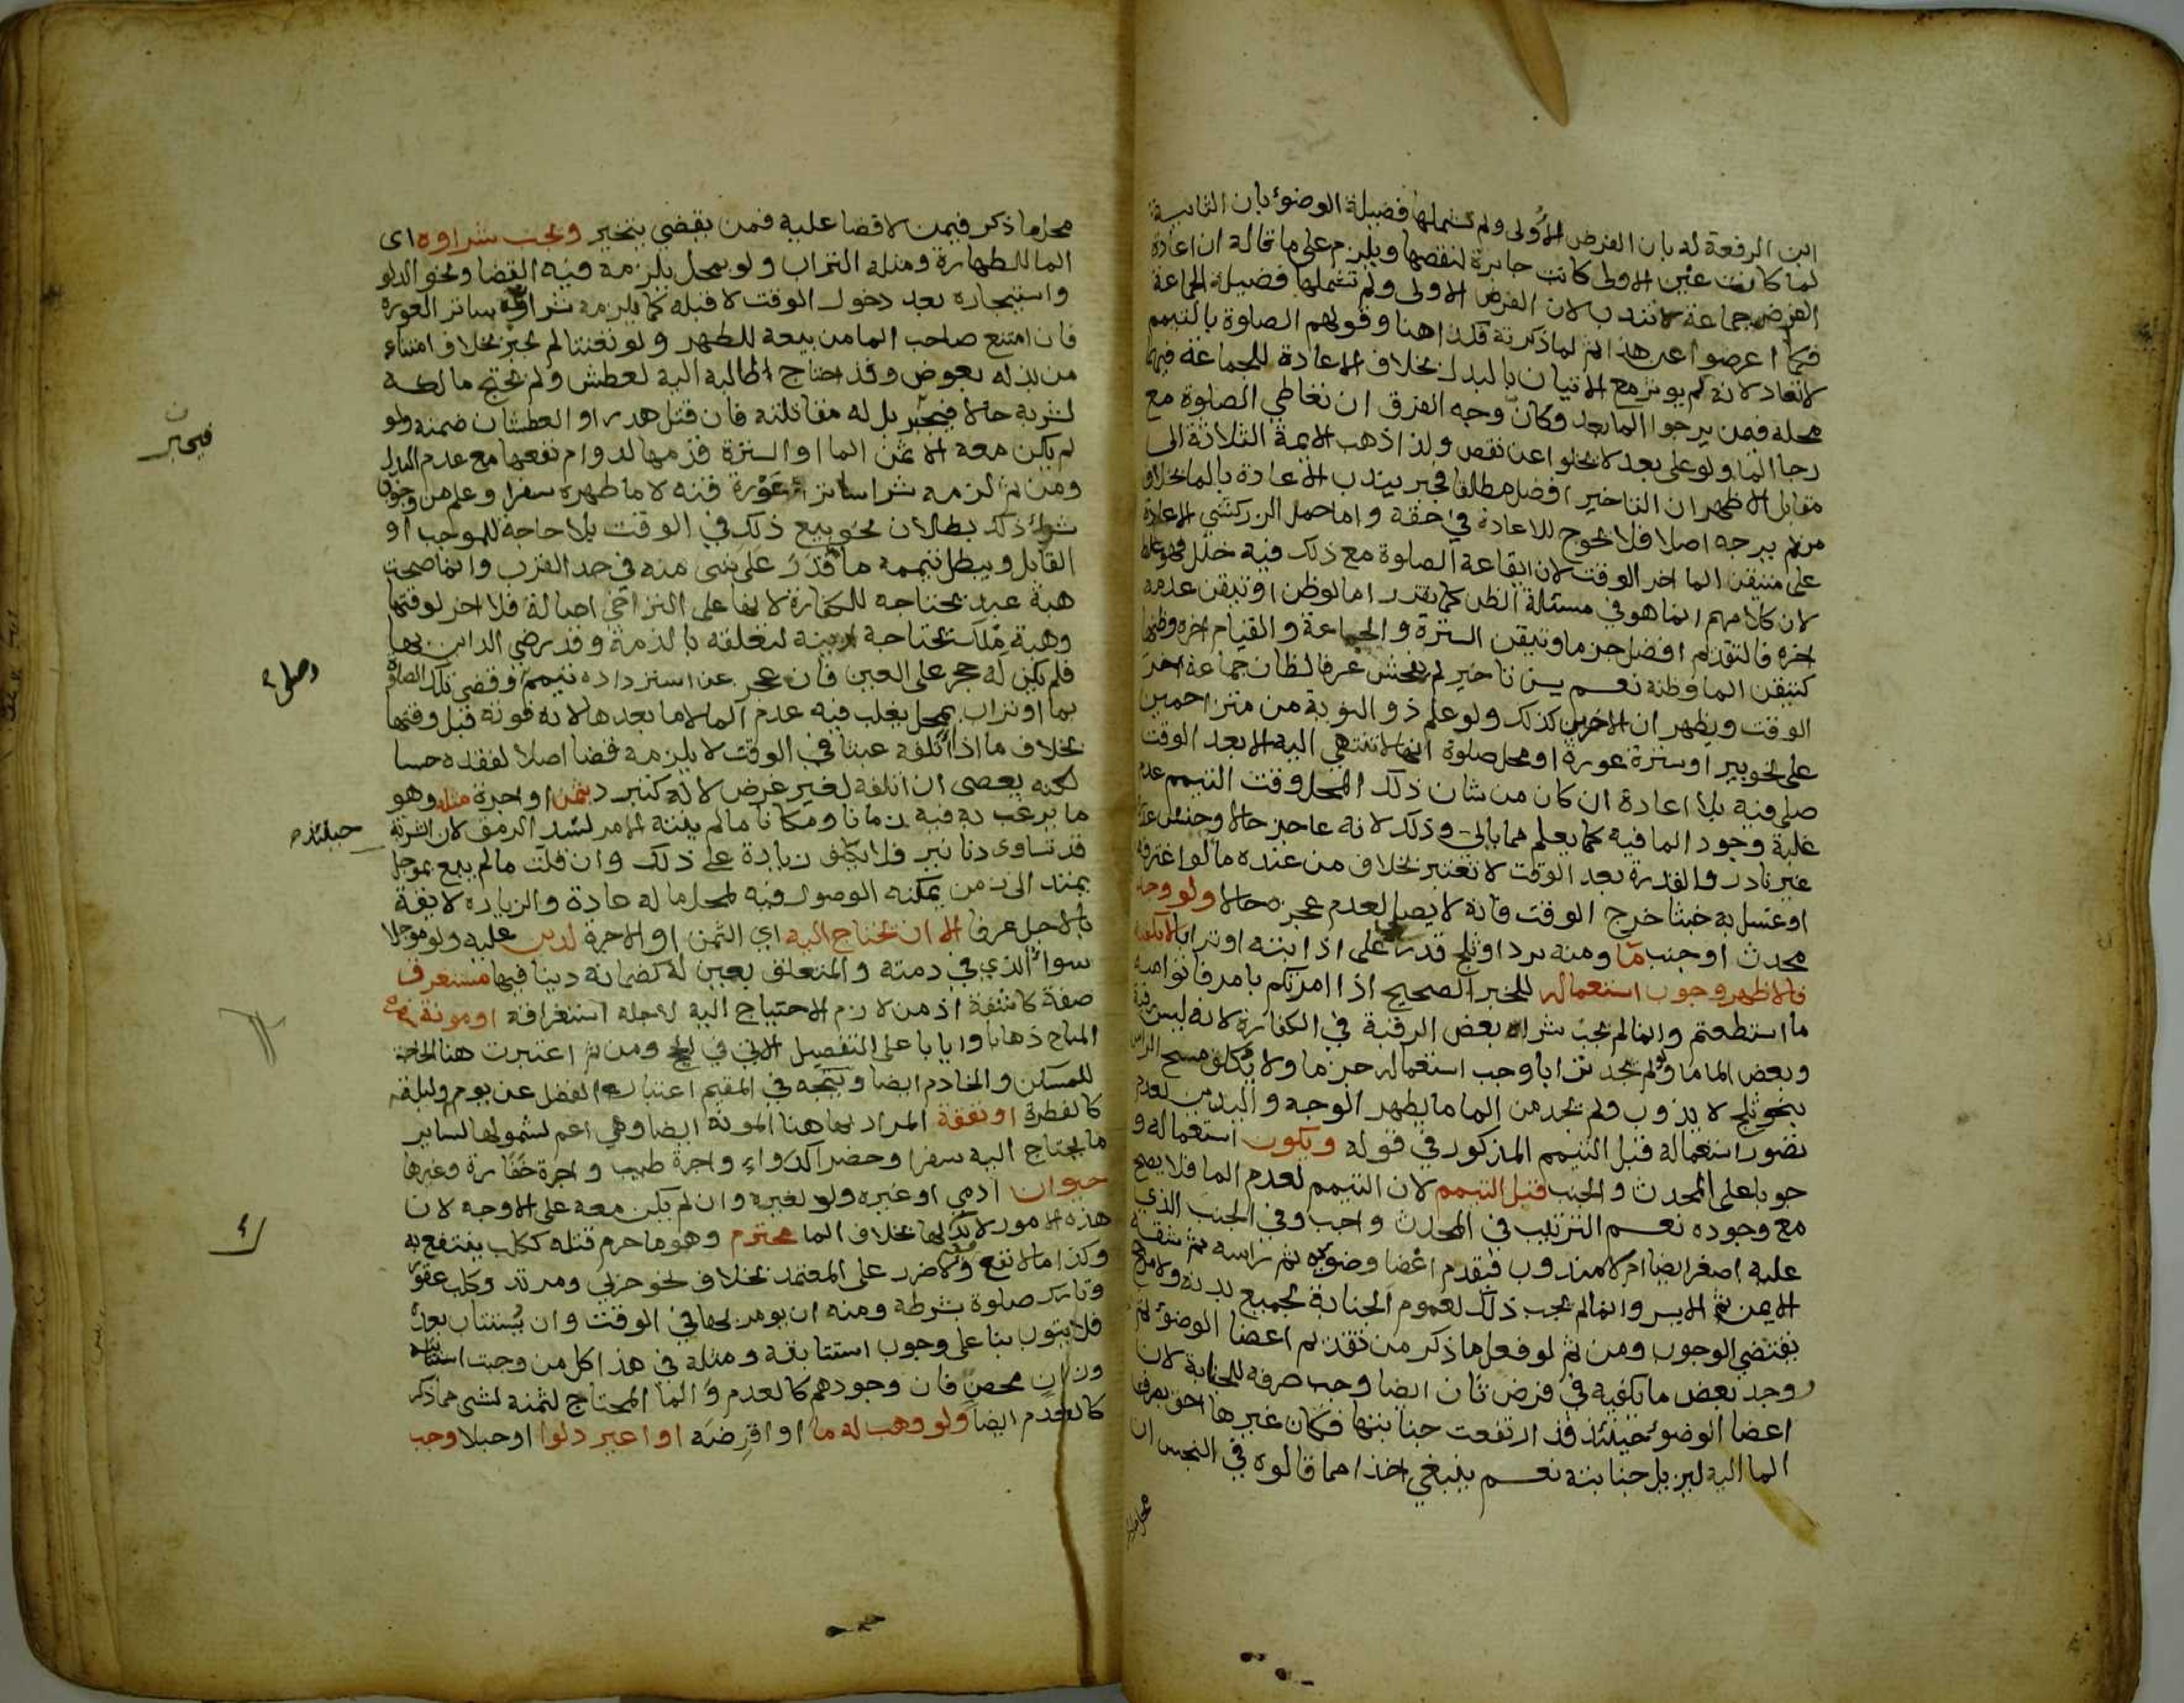 ابن الرفعة له بان الفرض الأولى ولم تشملها فضيلة الوضوء بان الثانية
لما كانت عين الاولى كانت جابرة لنقصها ويلزم على ما قاله ان اعادة
الفرض جماعة لا تندب لان الفرض الاولى ولم تشملها فضيلة الجماعة
فكما اعرضوا عن هذا ثم لما ذكرته فكذا هنا وقولهم الصلوة بالتيمم
لا تعاد لانه لم يوثر مع الاتيان بالبدل بخلاف الاعادة للجماعة فيها
محله فمن يرجوا الما بعد وكان وجه الفرق ان تعاطي الصلوة مع
رجا الما ولو على بعد لا يخلوا عن نقص ولذا ذهب الايمة الثلاثة الى
مقابل الاظهر ان التاخير افضل مطلقا فجبر بندب الاعادة بالما بخلاف
من لم يرجه اصلا فلا يحوج للاعادة في حقه واما حمل الزركشي الاعادة
على متيقن الما اخر الوقت لان ايقاعه الصلوة مع ذلك فيه خلل فهو غلط
لان كلامهم انما هو في مسئلة الظن كما يقرر اما لو ظن او تيقن عدمه
اخره فالتقديم افضل جزما وتيقن السترة والجماعة والقيام اخره وظنها
كتيقن الما وظنه نعم يسن تاخير لم يفحش عرفا لظان جماعة اخر
الوقت ويظهر ان الاخرين كذلك ولو علم ذو النوبة من متزاحمين
على نحو بير او سترة عورة او محل صلوة انها لا تنتهي اليه الا بعد الوقت
صلى فيه بلا اعادة ان كان من شان ذلك المحل وقت التيمم عدم
غلبة وجود الما فيه كما يعلم مما ياتي وذلك لانه عاجز حالا وجنس عذره
غير نادر والقدرة بعد الوقت لا تعتبر بخلاف من عنده ما لو اغترفه
او غسل به خبثا خرج الوقت فانه لا يصلي لعدم عجزه حالا ولو وجد
محدث او جنب ما ومنه برد او ثلج قدر على اذابته او ترابا لا يكفيه
فالاظهر وجوب استعماله للخبر الصحيح اذا امرتكم بامر فاتوا منه
ما استطعتم وانما لم يجب شراء بعض الرقبة في الكفارة لانه ليس رقبة
وبعض الما ما ولو لم يجد ترابا وجب استعماله جزما ولا يكلف مسح الراس
بنحو ثلج لا يذوب ولم يجد من الما ما يطهر الوجه واليدين لعدم
تصور استعماله قبل التيمم المذكور في قوله ويكون استعماله و
جوبا على المحدث والجنب قبل التيمم لان التيمم لعدم الما فلا يصح
مع وجوده نعم الترتيب في المحدث واجب وفي الجنب الذي
عليه اصغر ايضا ام لا مندوب فيقدم اعضا وضوئه ثم راسه ثم شقه
الايمن ثم الايسر وانما لم يجب ذلك لعموم الجنابة لجميع بدنه ولا مرجح
يقتضي الوجوب ومن ثم لو فعل ما ذكر من تقديم اعضا الوضوء ثم
وجد بعض ما يكفيه في فرض ثان ايضا وجب صرفه للجنابة لان
اعضا الوضوء حينئذ قد ارتفعت جنابتها فكان غيرها احق بصرف
الما اليه ليزيل جنابته نعم ينبغي اخذا مما قالوه في النجس ان
محل ما ذكر فيمن لا قضا عليه فمن يقضي يتخير ويجب شراوه اى
الما للطهارة ومثله التراب ولو بمحل يلزمه فيه القضا ونحو الدلو
واستيجاره بعد دخول الوقت لا قبله كما يلزمه شراء ساتر العورة
فان امتنع صاحب الما من بيعه للطهر ولو تعنتا لم يجبر بخلاف امتناعه
من بذله بعوض وقد احتاج الطالب اليه لعطش ولم يحتج مالكه
لشربه حالا فيجبر بل له مقاتلته فان قتل هدر او العطشان ضمنه ولو
لم يكن معه الا ثمن الما او السترة قدمها لدوام نفعها مع عدم البدل
ومن ثم لزمه شرا ساتر عورة قنه لا ما طهره سفرا وعلم من وجوب
شراء ذلك بطلان نحو بيع ذلك في الوقت بلا حاجة للموجب او
القابل ويبطل تيممه ما قدر على شى منه في حد القرب وانما صحت
هبة عبد يحتاجه للكفارة لانها على التراخي اصالة فلا اخر لوقتها
وهبة ملك يحتاجه لدينه لتعلقه بالذمة وقد رضي الداين بها
فلم يكن له حجر على العين فان عجز عن استرداده تيمم وقضى تلك الصلوة
بما او تراب بمحل يغلب فيه عدم الما لا ما بعدها لانه فوته قبل وقتها
بخلاف ما اذا اتلفه عبثا في الوقت لا يلزمه قضا اصلا لفقده حسا
لكنه يعصى ان اتلفه لغير غرض لا له كتبرد بثمن او اجرة مثله وهو
ما يرغب به فيه زمانا ومكانا ما لم ينته الامر لسد الرمق لان الشربة
قد تساوى دنانير فلا يكلف زيادة على ذلك وان قلت ما لم يبع بموجل
يمتد الى زمن يمكنه الوصول فيه لمحل ماله عادة والزيادة لايقة
بالاجل عرفا الا ان يحتاج اليه اي الثمن او الاجرة لدين عليه ولو موجلا
سواء الذي في ذمته والمتعلق بعين له كضمانه دينا فيها مستغرق
صفة كاشفة اذ من لازم الاحتياج اليه لاجله استغراقه او مونة سفره
المباح ذهابا وايابا على التفصيل الاتي في الحج ومن ثم اعتبرت هنا الحاجة
للمسكن والخادم ايضا ويتجه في المقيم اعتبار الفضل عن يوم وليلة
كالفطرة او نفقة المراد بها هنا المونة ايضا وهي اعم لشمولها لساير
ما يحتاج اليه سفرا وحضرا كدواء واجرة طبيب واجرة خفارة وغيرها
حيوان ادمي او غيره ولو لغيره وان لم يكن معه على الاوجه لان
هذه الامور لا بدل لها بخلاف الما محترم وهو ما حرم قتله ككلب ينتفع به
وكذا ما لا نفع فيه ولا ضرر على المعتمد بخلاف نحو حربي ومرتد وكلب عقور
وتارك صلوة بشرطه ومنه ان يومر بها في الوقت وان يستتاب بعده
فلا يتوب بنا على وجوب استتابته ومثله في هذا كل من وجبت استتابته
وزان محصن فان وجودهم كالعدم والما المحتاج لثمنه لشى مما ذكر
كالعدم ايضا ولو وهب له ما او اقرضه او اعير دلوا او حبلا وجب
فيجبر
وصلى
حينئذ